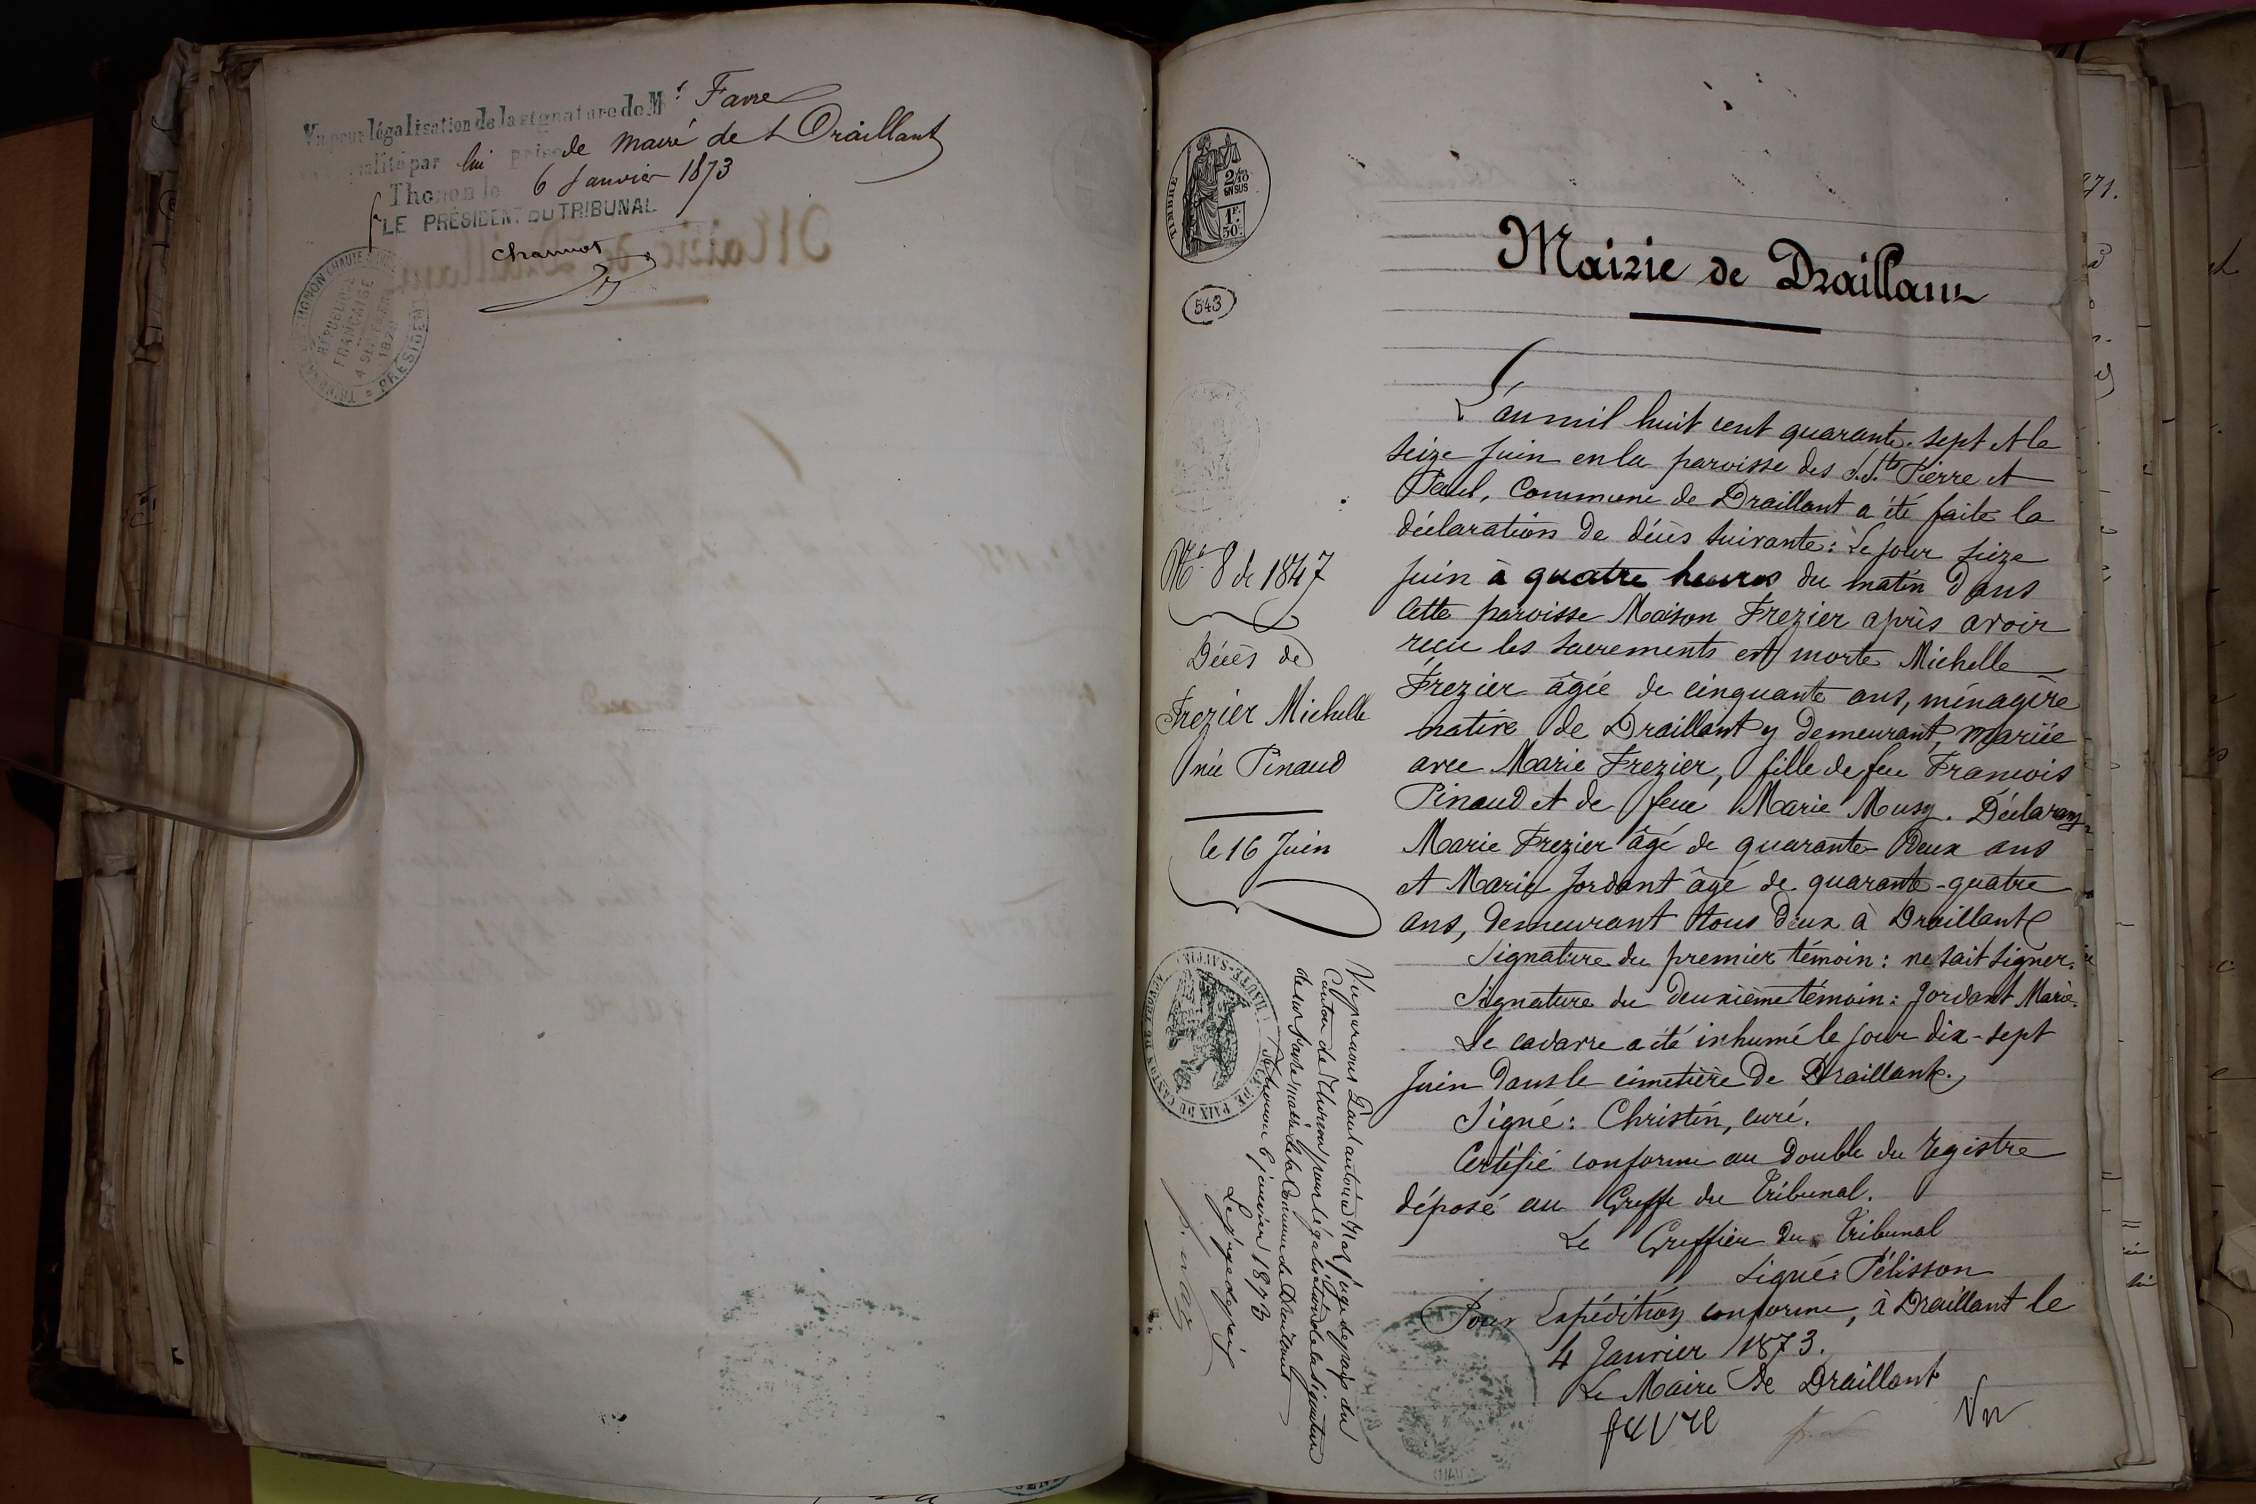 Vu pour légalisation de la signature de Mr Favre
qualité par lui prise de maire de Draillant
Thonon le 6 Janvier 1873
LE PRÉSIDENT DU TRIBUNAL
RÉPUBLIQUE
FRANÇAISE
4 SEPTEMBRE
PRÉSIDENT
TIMBRE
2/10
EN SUS
1F
50c
543
No 8 de 1847
Décès de
Frezier Michelle
née Pinaud
le 16 Juin
HAUTE-SAVOIE
Vu par nous Paul antoine juge de paix du
Canton de Thonon pour légalisation de la signature
de la Commune de Draillant
Thonon 6 janvier 1873
Le juge de paix
Mairie de Draillant
L'an mil huit cent quarante-sept et le
seize Juin en la paroisse des S.S.ts Pierre et
Paul, Commune de Draillant a été faite la
déclaration de décès suivante: Le jour seize
Juin à quatre heures du matin dans
cette paroisse Maison Frezier après avoir
reçu les sacrements est morte Michelle
Frezier âgée de cinquante ans, ménagère
native de Draillant y demeurant, mariée
avec Marie Frezier, fille de feu François
Pinaud et de feue Marie Musy. Déclarants
Marie Frezier âgé de quarante-deux ans
et Marie Jordant âgé de quarante-quatre
ans, demeurant tous deux à Draillant
Signature du premier témoin: ne sait signer.
Signature du deuxième témoin: Jordant Marie.
Le cadavre a été inhumé le jour dix-sept
Juin dans le cimetière de Draillant.
Signé: Christin, curé.
Certifié conforme au double du registre
déposé au Greffe du Tribunal.
Le Greffier du Tribunal
Signé: Pélisson
Pour Expédition conforme, à Draillant le
4 Janvier 1873.
Le Maire de Draillant
favre